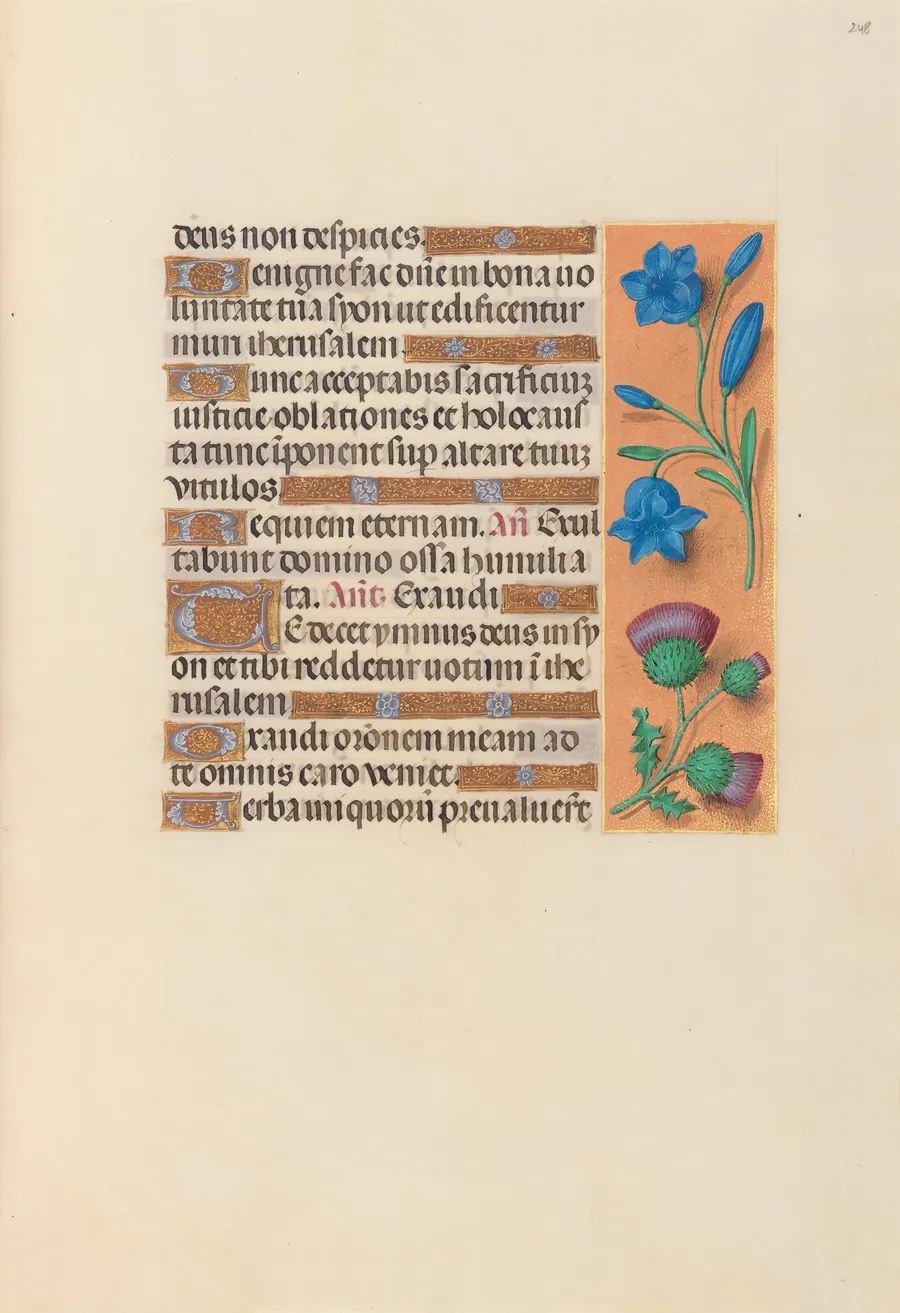 248
deus non despicies.
Benigne fac dñe in bona uo
luntate tua syon ut edificentur
muri iherusalem.
Tunc acceptabis sacrificiuʒ
iusticie oblationes et holocaus
ta tunc īponent sup altare tuuʒ
vitulos.
Requiem eternam. Añ Exul
tabunt domino ossa humilia
ta. Añt. Exaudi
TE decet ymnus deus in sy
on et tibi reddetur uotum ī ihe
rusalem.
Exaudi orōnem meam ad
te omnis caro veniet.
Verba iniquorū preualuer̄t